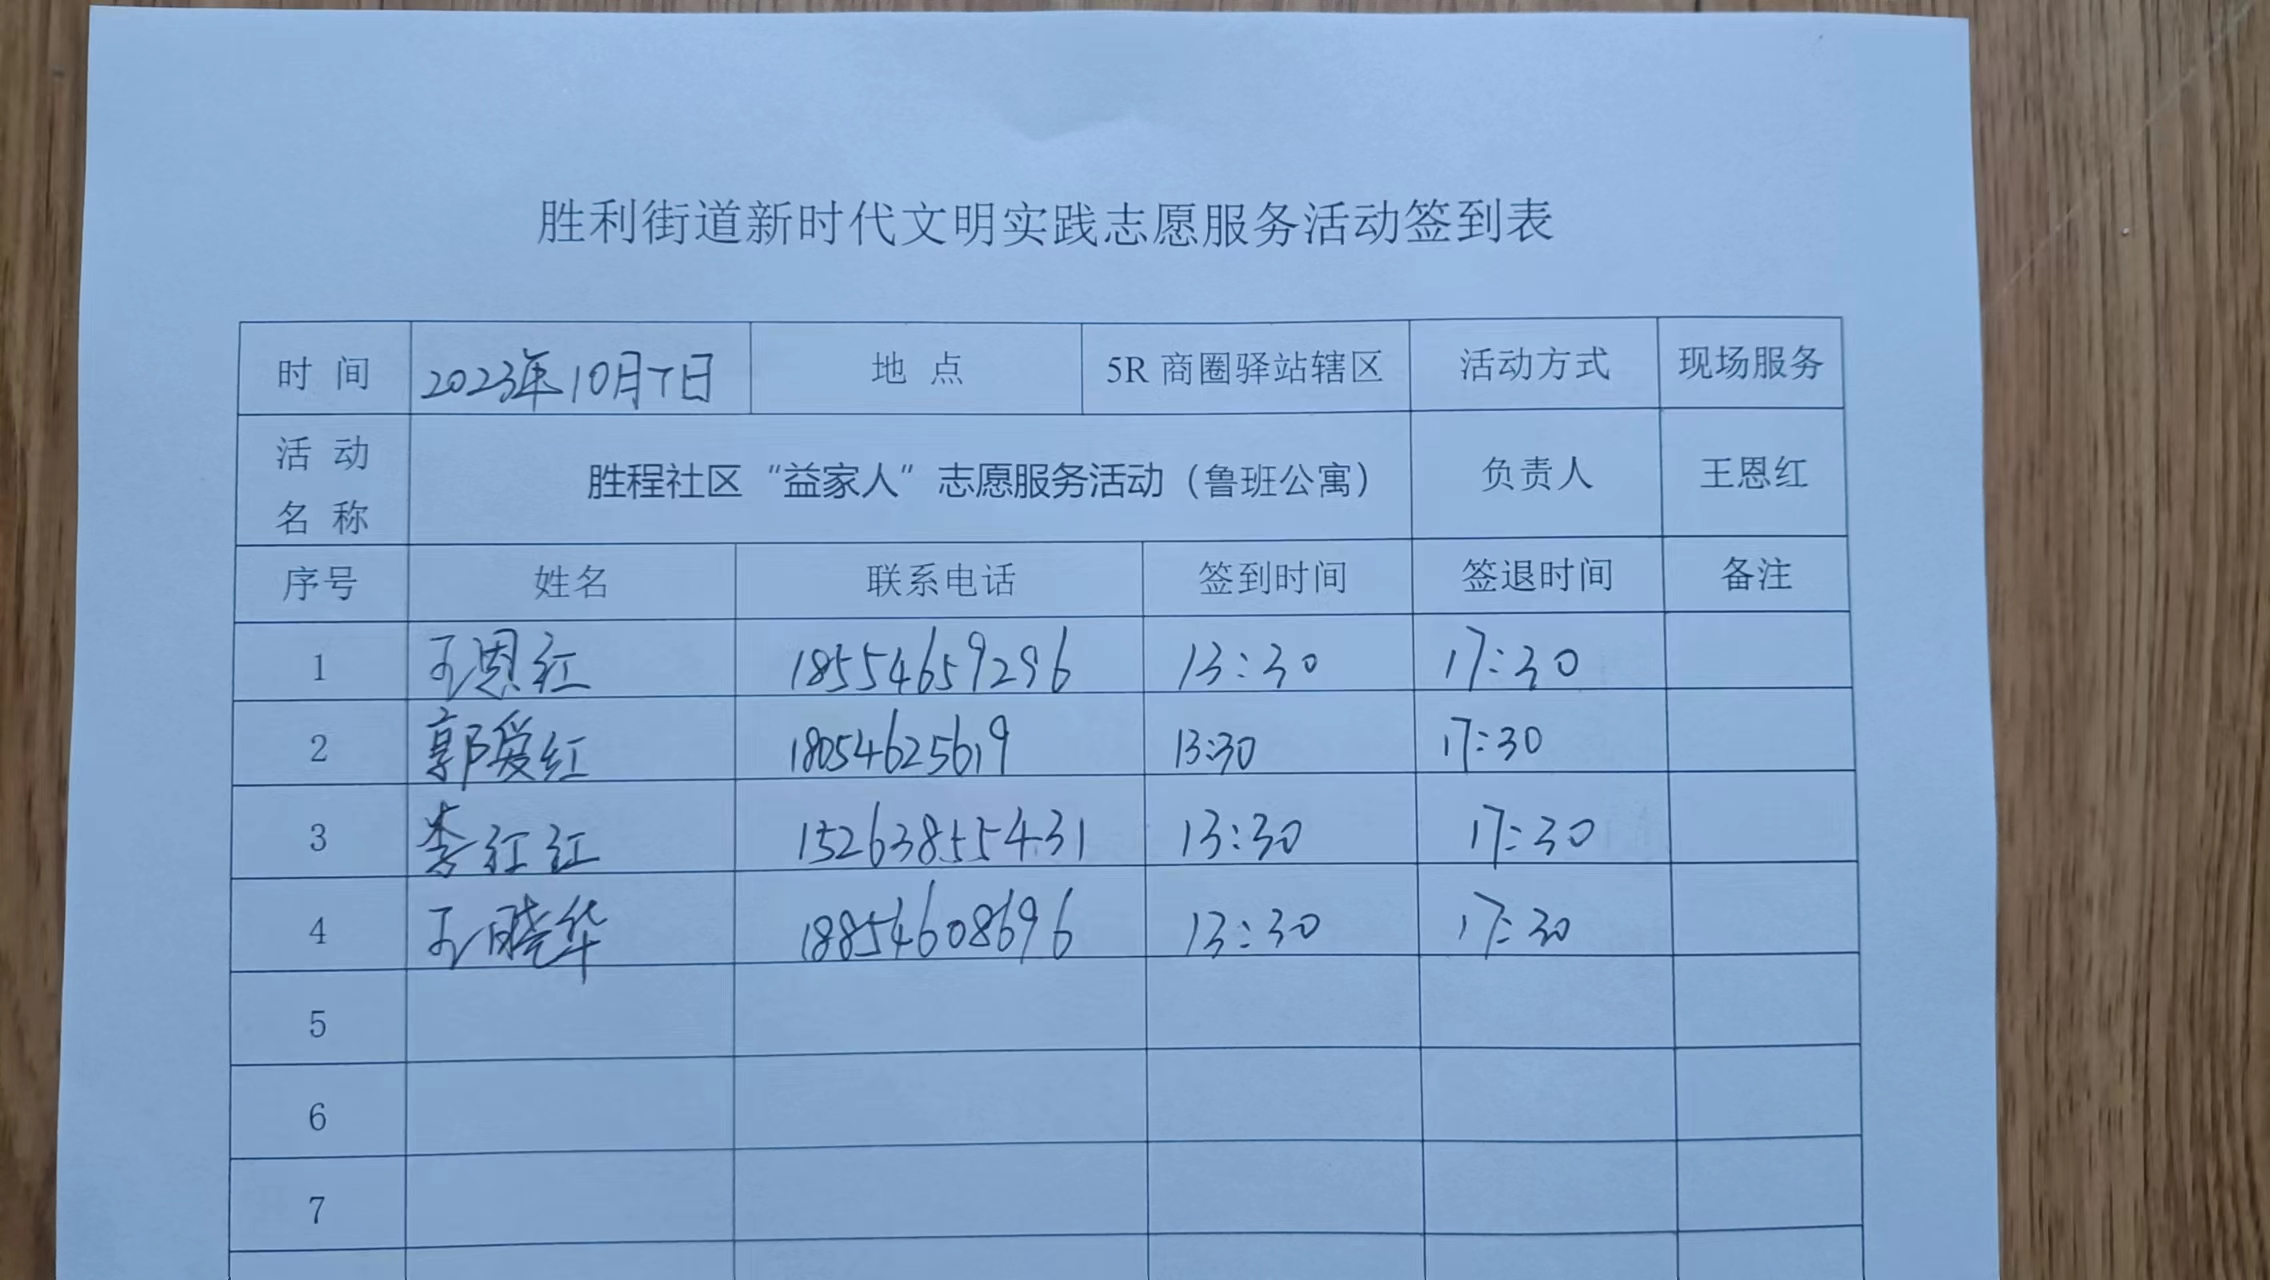 胜利街道新时代文明实践志愿服务活动签到表
时 间 2023年10月7日 地 点 5R 商圈驿站辖区 活动方式 现场服务
活 动 名 称 胜程社区“益家人”志愿服务活动（鲁班公寓） 负责人 王恩红
序号 姓名 联系电话 签到时间 签退时间 备注
1 王恩红 18554659296 13:30 17:30
2 郭爱红 18054625619 13:30 17:30
3 李红红 15263855431 13:30 17:30
4 王晓华 18854608696 13:30 17:30
5
6
7